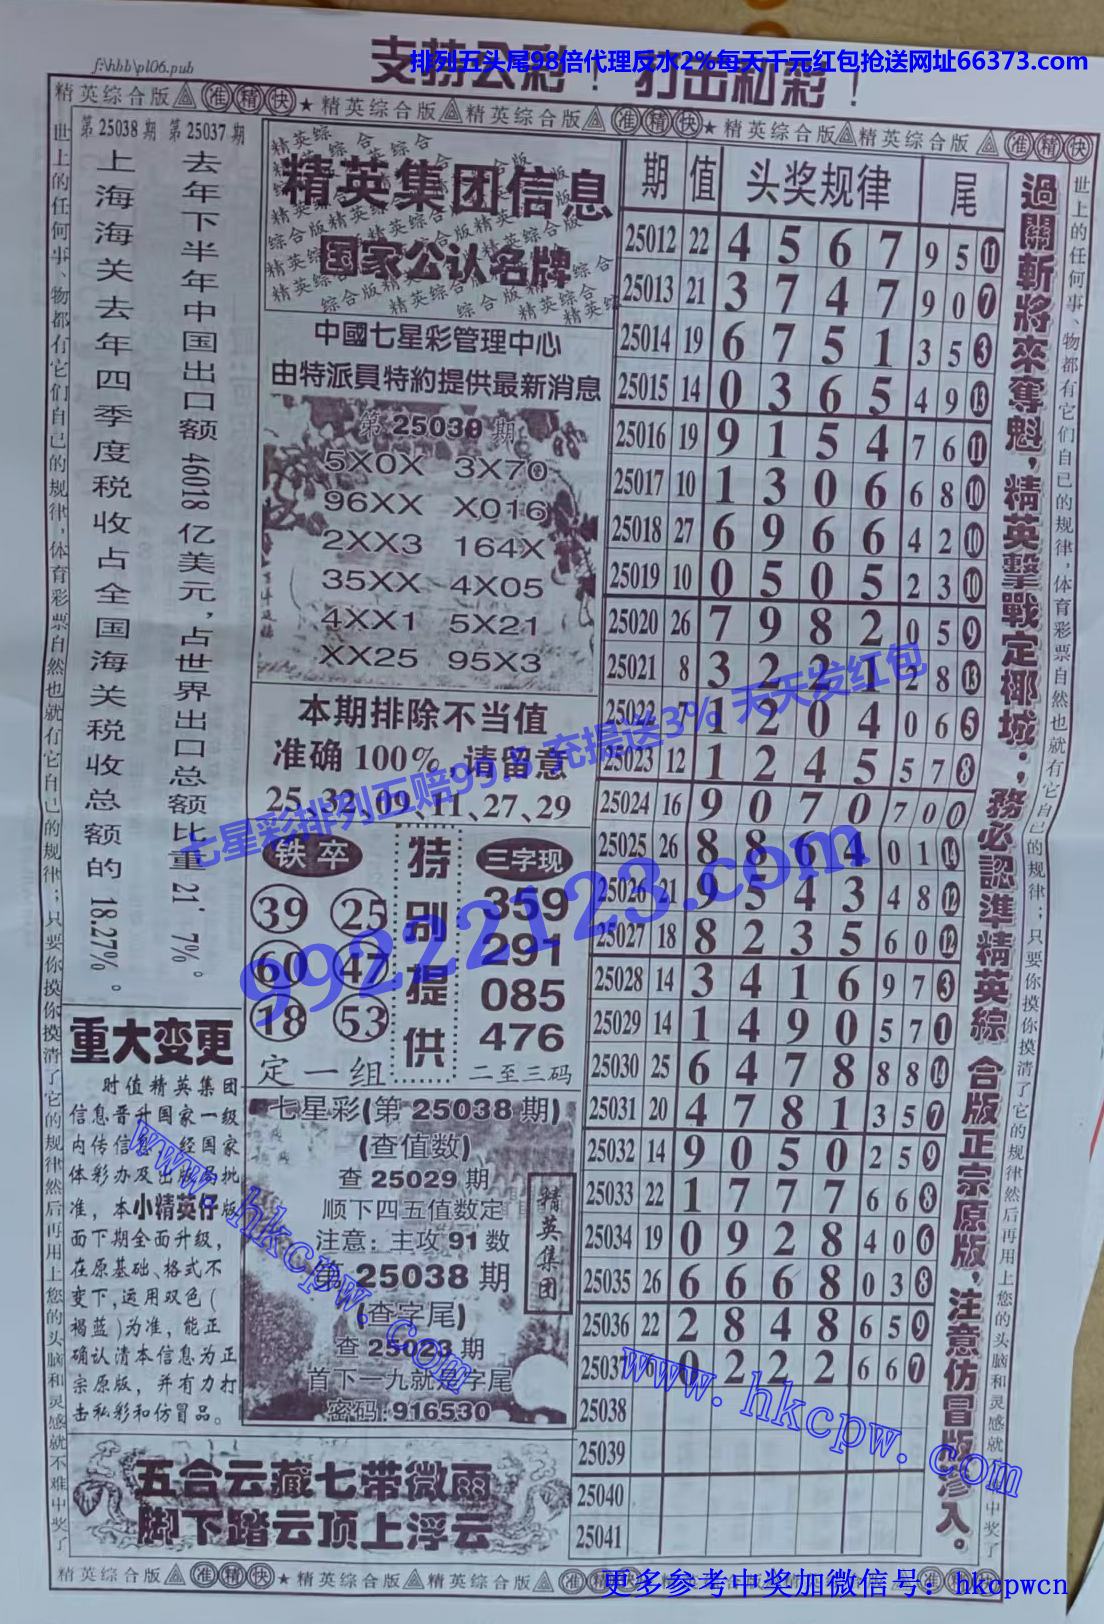 f:\hbb\pl06.pub
支持公彩！打击私彩！
排列五头尾98倍代理反水2%每天千元红包抢送网址66373.com
精英综合版 准精快 ★精英综合版 精英综合版 准精快 ★精英综合版 精英综合版 准精快
世上的任何事、物都有它们自己的规律，体育彩票自然也就有它自己的规律；只要你摸你摸清了它的规律然后再用上您的头脑和灵感就不难中奖了
第25038期 第25037期
上海海关去年四季度税收占全国海关税收总额的18.27%。
去年下半年中国出口额46018亿美元，占世界出口总额比重21.7%。
精英集团信息
国家公认名牌
中國七星彩管理中心
由特派員特約提供最新消息
第25038期
5X0X 3X70
96XX X016
2XX3 164X
35XX 4X05
4XX1 5X21
XX25 95X3
本期排除不当值
准确100%,请留意
25、32、09、11、27、29
铁卒
39 25
60 47
18 53
定一组
特别提供
三字现
359
291
085
476
二至三码
重大变更
时值精英集团
信息晋升国家一级
内传信息，经国家
体彩办及出版局批
准，本小精英仔版
面下期全面升级，
在原基础、格式不
变下，运用双色(
褐蓝)为准，能正
确认清本信息为正
宗原版，并有力打
击私彩和仿冒品。
七星彩(第25038期)
(查值数)
查25029期
顺下四五值数定
注意：主攻91数
第25038期
(查字尾)
查25023期
首下一九就是字尾
密码:916530
精英集团
五合云藏七带微雨
脚下踏云顶上浮云
期 值 头奖规律 尾
25012 22 4 5 6 7 9 5 11
25013 21 3 7 4 7 9 0 7
25014 19 6 7 5 1 3 5 3
25015 14 0 3 6 5 4 9 13
25016 19 9 1 5 4 7 6 11
25017 10 1 3 0 6 6 8 10
25018 27 6 9 6 6 4 2 10
25019 10 0 5 0 5 2 3 10
25020 26 7 9 8 2 0 5 9
25021 8 3 2 2 1 2 8 13
25022 7 1 2 0 4 0 6 5
25023 12 1 2 4 5 5 7 8
25024 16 9 0 7 0 7 0 0
25025 26 8 8 6 4 0 1 14
25026 21 9 5 4 3 4 8 12
25027 18 8 2 3 5 6 0 12
25028 14 3 4 1 6 9 7 3
25029 14 1 4 9 0 5 7 1
25030 25 6 4 7 8 8 8 14
25031 20 4 7 8 1 3 5 7
25032 14 9 0 5 0 2 5 9
25033 22 1 7 7 7 6 6 8
25034 19 0 9 2 8 4 0 6
25035 26 6 6 6 8 0 3 8
25036 22 2 8 4 8 6 5 9
25037 6 0 2 2 2 6 6 7
25038
25039
25040
25041
過關斬將來奪魁，精英擊戰定椰城；務必認準精英綜合版正宗原版，注意仿冒版滲入。
世上的任何事、物都有它们自己的规律，体育彩票自然也就有它自己的规律；只要你摸你摸清了它的规律然后再用上您的头脑和灵感就不难中奖了
七星彩排列五赔99.5 充提送3% 天天发红包
99222123.com
www.hkcpw.com
www.hkcpw.com
精英综合版 准精快 ★精英综合版 精英综合版 准精快
更多参考中奖加微信号：hkcpwcn